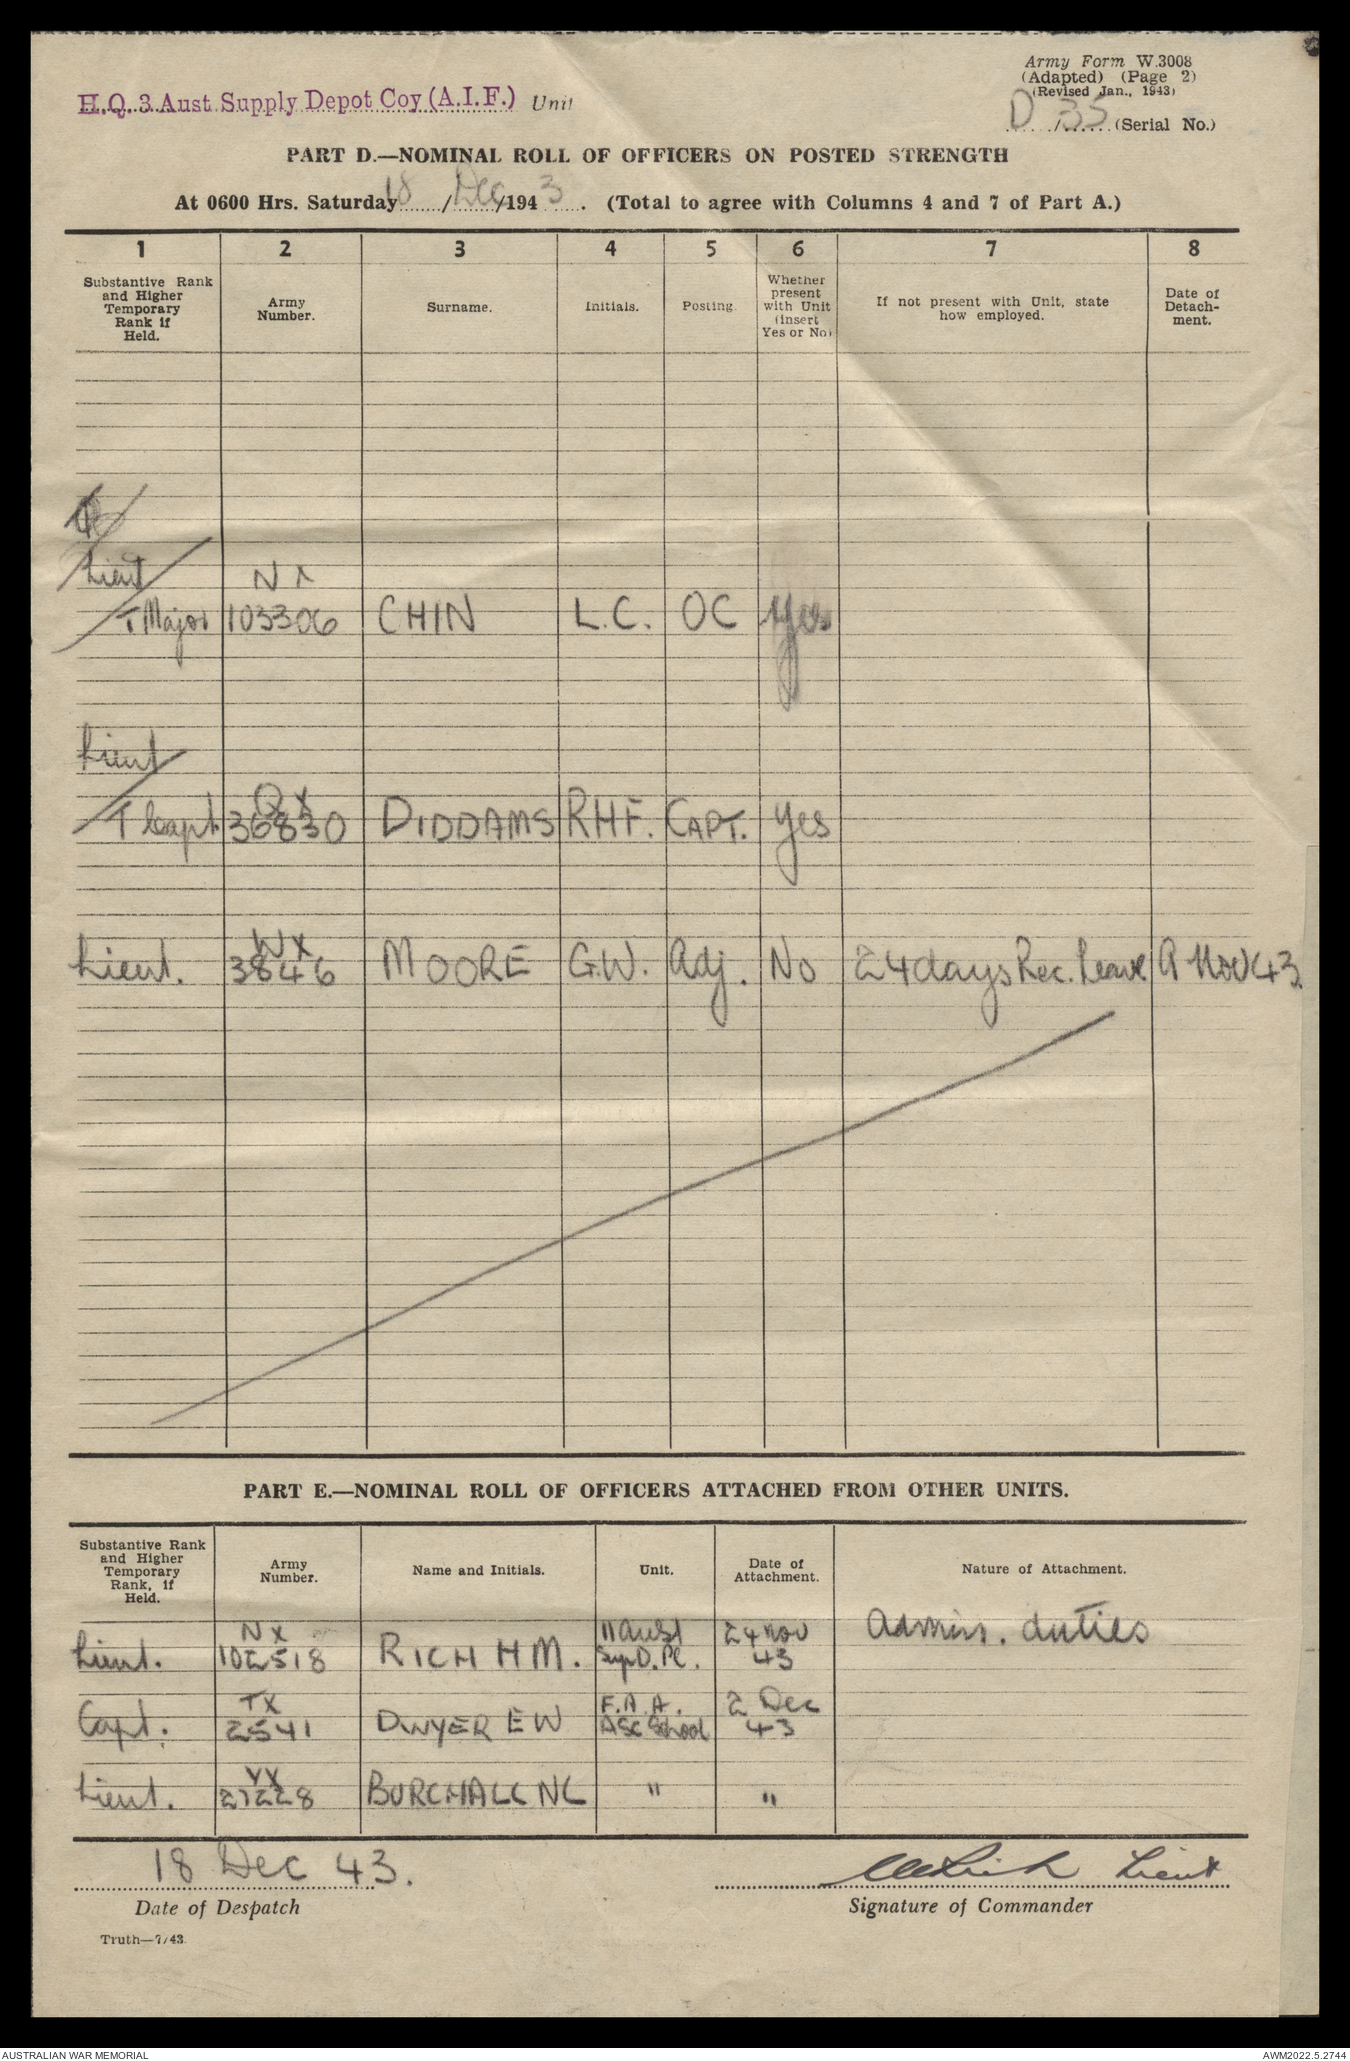 Army Form W.3008
(Adapted) (Page 2)
(Revised Jan., 1943)
H.Q. 3 Aust Supply Depot Coy (A.I.F.) Unit
D / 35 (Serial No.)
PART D.—NOMINAL ROLL OF OFFICERS ON POSTED STRENGTH
At 0600 Hrs. Saturday 18 / Dec /1943. (Total to agree with Columns 4 and 7 of Part A.)
1 2 3 4 5 6 7 8
Substantive Rank and Higher Temporary Rank if Held. Army Number. Surname. Initials. Posting. Whether present with Unit (insert Yes or No) If not present with Unit, state how employed. Date of Detach- ment.
Lieut NX
T Major 103306 CHIN L.C. OC Yes
Lieut QX
T Capt. 36830 DIDDAMS RHF. CAPT. Yes
WX
Lieut. 3846 MOORE G.W. Adj. No 24 days Rec. Leave Nov 43.
PART E.—NOMINAL ROLL OF OFFICERS ATTACHED FROM OTHER UNITS.
Substantive Rank and Higher Temporary Rank, if Held. Army Number. Name and Initials. Unit. Date of Attachment. Nature of Attachment.
NX 11 Aust 24 Nov Admin. duties
Lieut. 102518 RICH H M. Sup D. Pl. 43
TX F.A.A. 2 Dec
Capt. 2541 DWYER E W ASC School 43
VX
Lieut. 27228 BURCHALL NL " "
18 Dec 43. Lieut
Date of Despatch Signature of Commander
Truth—7/43.
AUSTRALIAN WAR MEMORIAL AWM2022.5.2744